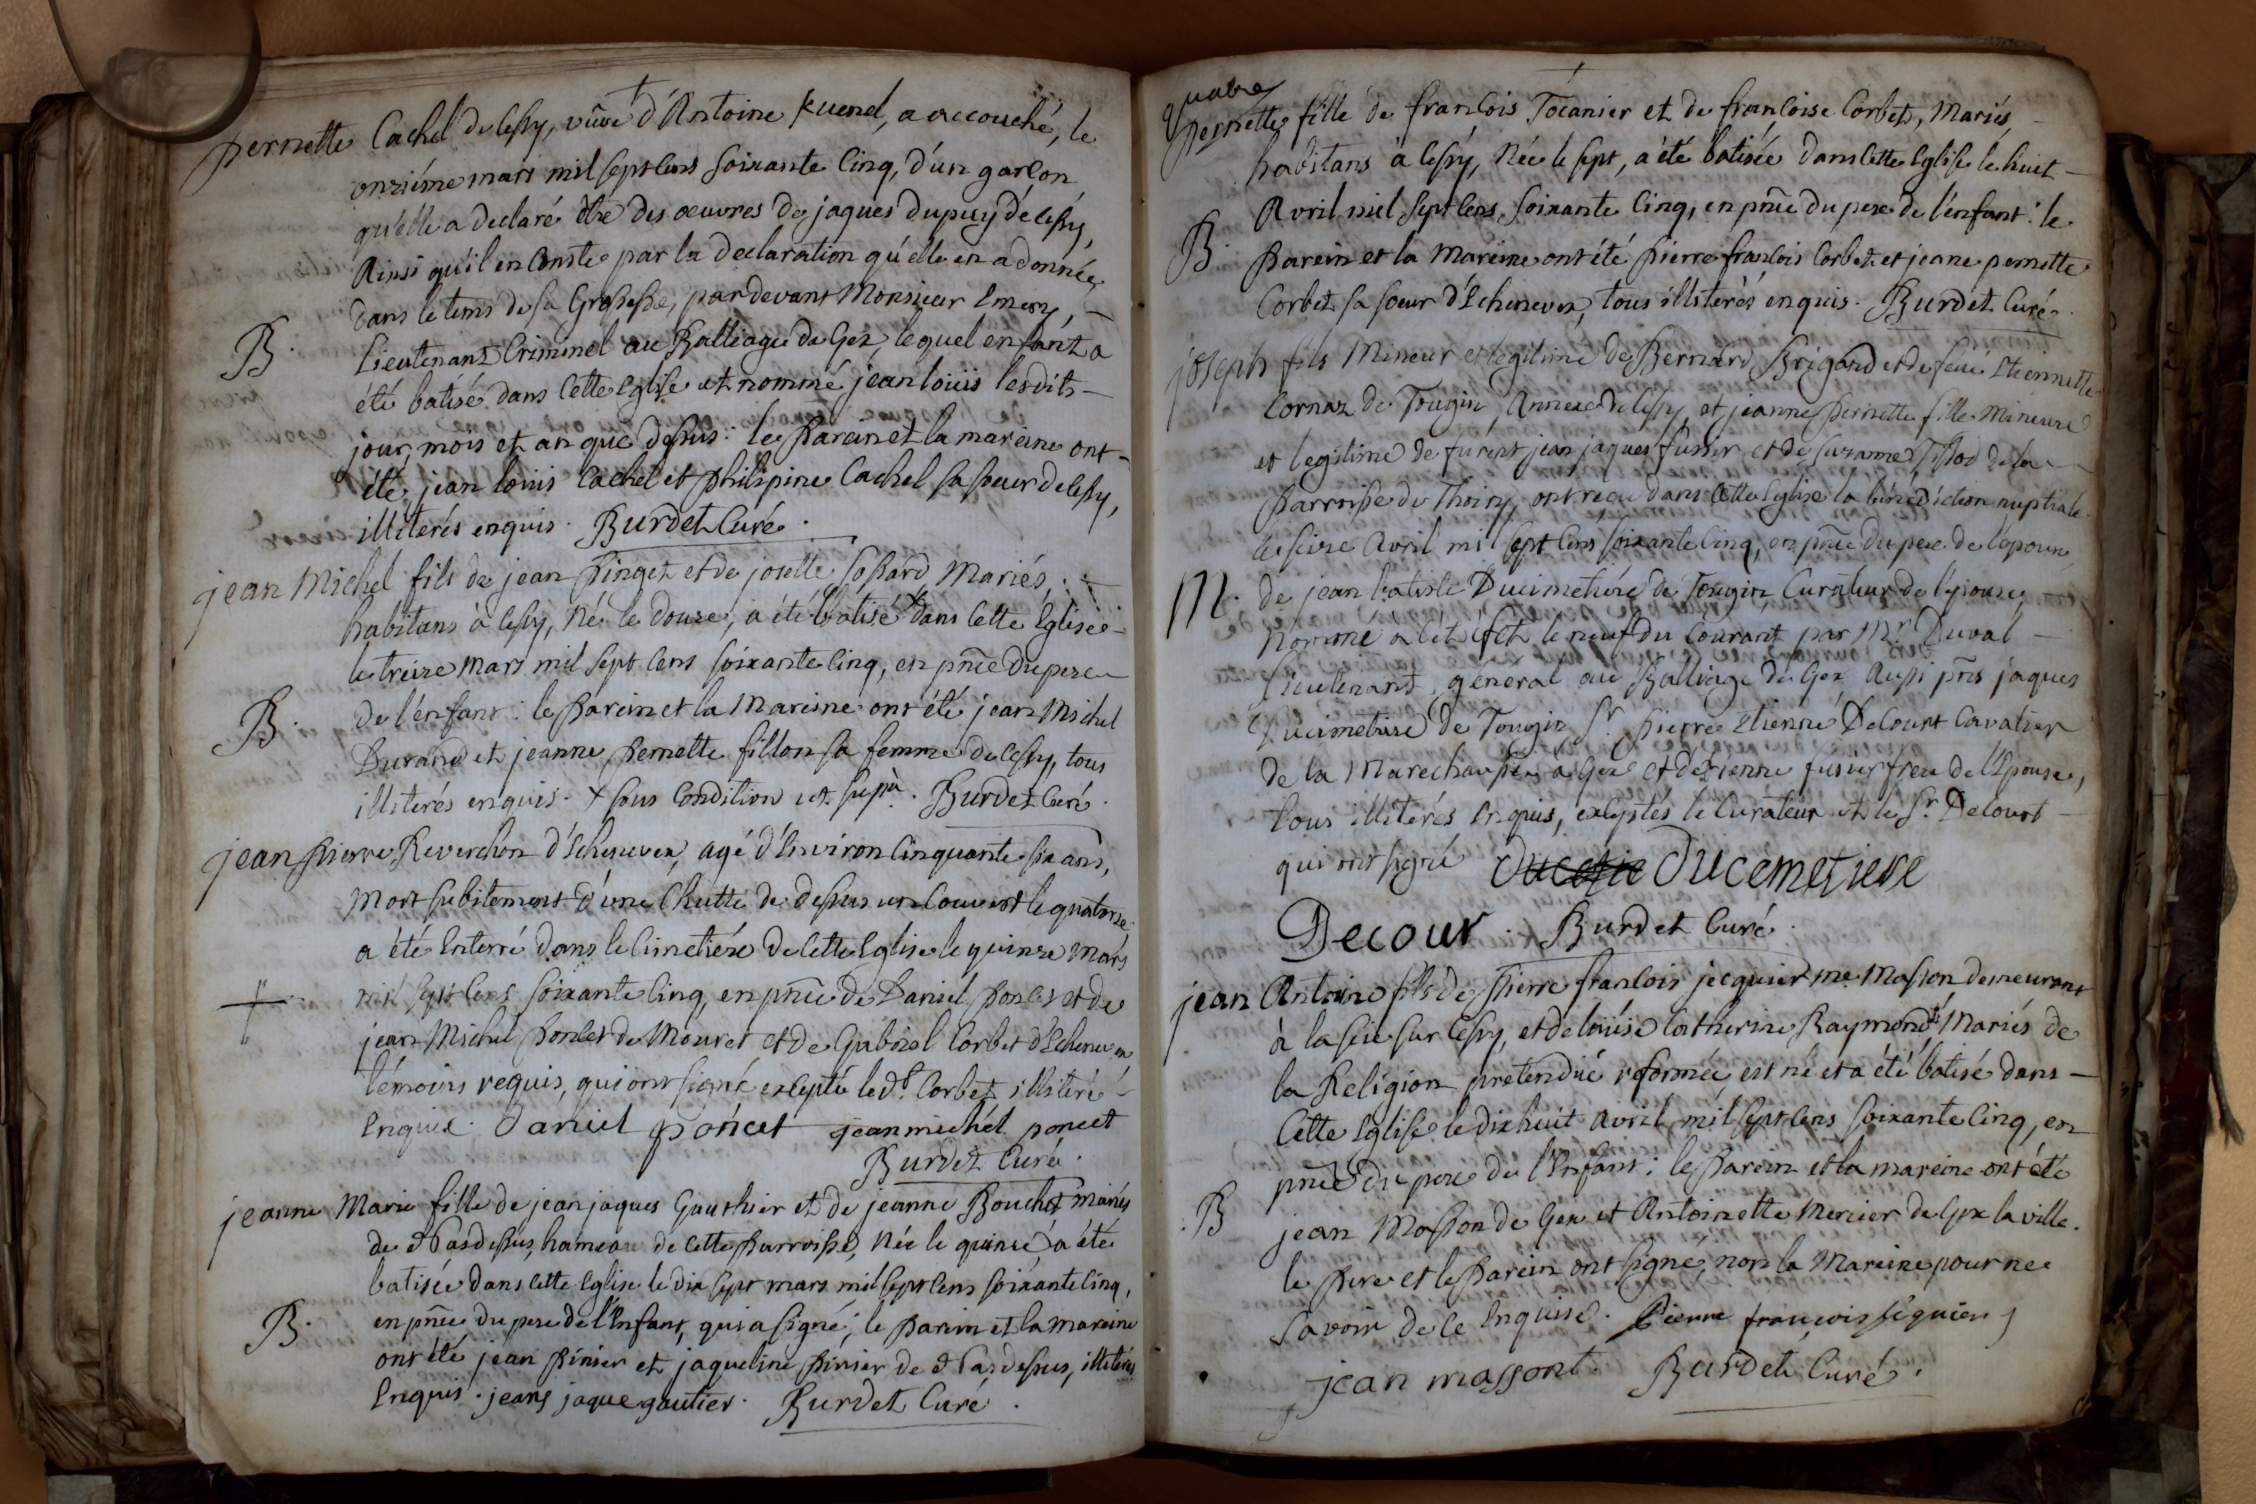 pernette Cachel de Cessy, vûve d'Antoine Ruenel, a accouché, le
onziéme mars mil sept cens soixante cinq, d'un garçon
qu'elle a declaré être des oeuvres de jaques dupuy de Cessy,
Ainsi qu'il en conste par la declaration qu'elle en a donnée
dans le tems de sa Grossesse, pardevant Monsieur Emery,
B.
Lieutenant Criminel au Balliage de Gex, lequel enfant a
été batisé dans cette Eglise et nommé jean louis lesdits
jour, mois et an que dessus : le Parein et la mareine ont
été, jean louis Cachel et philipine Cachel sa soeur de Cessy,
illiterés enquis. Burdet Curé.
jean Michel fils de jean Pinget et de joselle Sossard Mariés,
habitans à Cessy, Né le douze, a été batisé x dans cette Eglise
le treize mars mil sept cens soixante cinq, en pñce du pere
B.
de l'enfant : le Parein et la Mareine ont été jean Michel
Durand et jeanne Pernette fillon sa femme de Cessy, tous
illiterés enquis. x sous condition ut supà. Burdet Curé.
jean Pierre Reverchon d'Echenevex, agé d'Environ Cinquante six ans,
Mort subitement d'une Chutte de dessus un couvert le quatorze
a été Enterré dans le Cimetiére de cette Eglise le quinze Mars
mil sept cens soixante cinq, en pñce de Daniel Poncet et de
jean Michel Poncet de Mouret et de Gabriel Corbet d'Echenevex
témoins requis, qui ont signé excepté led.t Corbet, illiteré
Enquis. Daniel poncet jean michél poncet
Burdet Curé.
jeanne Marie fille de jean jaques Gauthier et de jeanne Bouchet mariés
de Pardessus, hameau de cette Parroisse, Née le quinze, a été
batisée dans cette Eglise le dix sept mars mil sept cens soixante cinq,
en pñce du pere de l'Enfant, qui a signé ; le Parein et la mareine
B.
ont été jean Pinier et jaqueline Pinier de Pardessus, illiterés
Enquis. jean jaque gautier. Burdet Curé.
Pernette fille de francois Tocanier et de françoise Corbet, Mariés
habitans à Cessy, Née le sept, a été batisée dans cette Eglise le huit
Avril mil sept cens soixante cinq, en pñce du pere de l'enfant : le
B.
Parein et la Mareine ont été Pierre francois Corbet et jeane pernette
Corbet sa soeur d'Echenevex, tous illiterés enquis. Burdet Curé.
joseph fils Mineur et legitime de Bernard Brigand et de feüe Etiennette
Cornaz de Tougin Annexe de Cessy, et jeanne Pernette fille Mineure
et legitime de furent jean jaques fusier et de Suzanne Tissot de la
Parroisse de Thoiry, ont reçu dans cette Eglise la bénédiction nuptiale
le seize Avril mil sept cens soixante cinq, en pñce du pere de l'epoux
M.
de jean batiste Ducimetiére de Tougin Curateur de l'epouse,
Nommé a cet éfet le neuf du Courant par Mr. Duval
Lieutenant général au Balliage de Gex Aussi pñs jaques
Ducimetiere de Tougin Sr. Pierre Etienne Decourt Cavalier
de la Marechaussée à Gex et d'Etienne fusier frere de l'Epouse,
tous illiterés Enquis, exceptés le Curateur et le Sr. Decourt
qui ont signé Ducemetiere
Decour. Burdet Curé.
jean Antoine fils de Pierre francois jecquier me Masson demeurant
à la scie sur Cessy, et de loüise Catherine Raymond Mariés de
la Religion prétendüe reformée est né et a été batisé dans
Cette Eglise le dix huit avril mil sept cens soixante cinq, en
pñce du pere de l'Enfant ; le Parein et la mareine ont été
B
jean Masson de Gex et Antoinette Mercier de Gex la ville.
le Pere et le Parein ont signé, non la Mareine pour ne
savoir de ce Enquise. Pierre françois jéquier
jean massont. Burdet Curé.